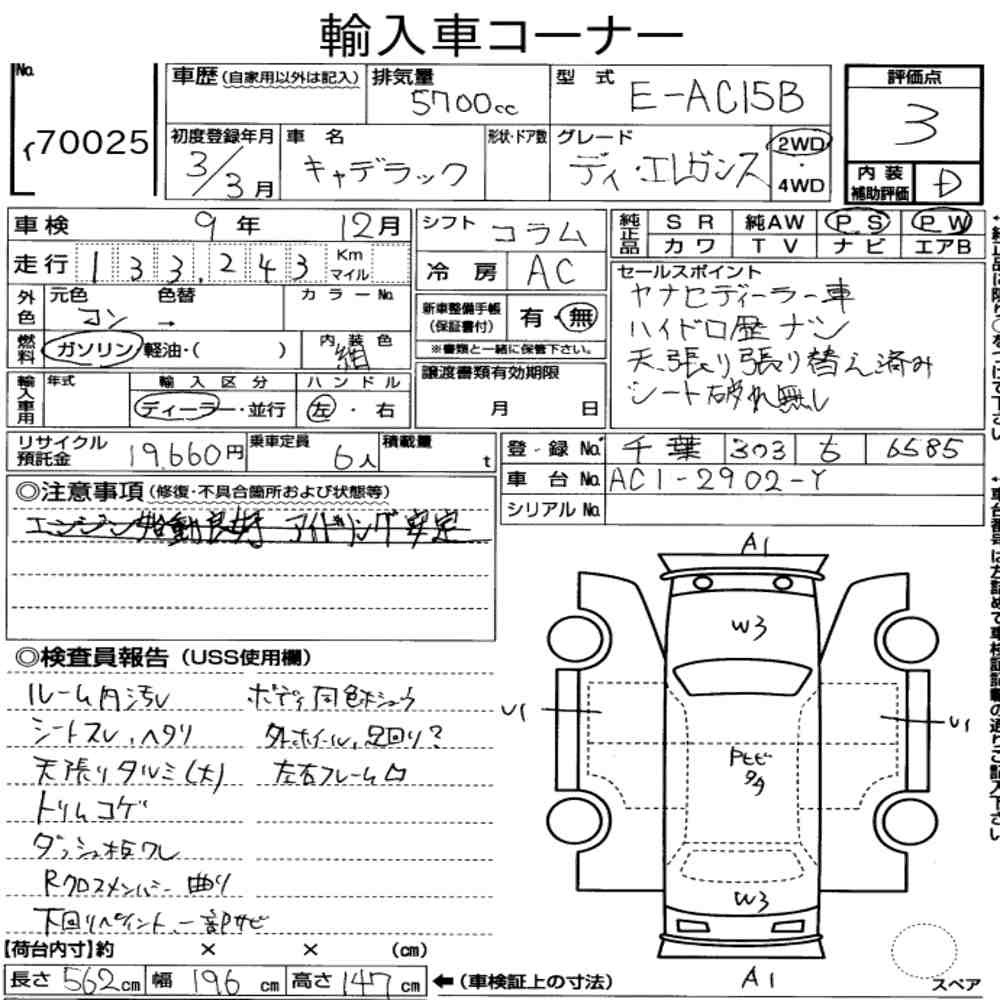 輸入車コーナー
No.
70025
車歴 (自家用以外は記入)
排気量
5700cc
型 式
E-AC15B
評価点
3
初度登録年月
3/3月
車 名
キャデラック
形状・ドア数
グレード
ディ・エレガンス
2WD
・
4WD
内 装
補助評価
D
車検 9年 12月
走行 133,243 Km マイル
外色 元色 コン → 色替 カラーNo.
燃料 ガソリン/軽油・( ) 内装色 紺
輸入車用 年式 輸入区分 ディーラー・並行 ハンドル 左・右
シフト コラム
冷 房 AC
新車整備手帳
(保証書付)
有・無
※書類と一緒に保管下さい。
譲渡書類有効期限
月 日
純正品 S R 純AW P S P W
カ ワ T V ナ ビ エアB
セールスポイント
ヤナセディーラー車
ハイドロ歴ナシ
天張り張り替え済み
シート破れ無し
リサイクル
預託金
19,660円
乗車定員 6人
積載量 t
登・録 No. 千葉 303 ち 6585
車 台 No. AC1-2902-Y
シリアル No.
◎注意事項 (修復・不具合箇所および状態等)
エンジン始動良好 アイドリング安定
◎検査員報告 (USS使用欄)
ルーム内汚れ
シートスレ、ヘタリ
天張りタルミ(大)
トリムコゲ
ダッシュ板ワレ
Rクロスメンバー曲り
下回りペイント、一部サビ
ボディ同色
外ホイール、足回り?
左右フレーム凹
A1
W3
U1
U1
W3
A1
スペア
【荷台内寸】約 × × (cm)
長さ 562cm 幅 196cm 高さ 147cm ←(車検証上の寸法)